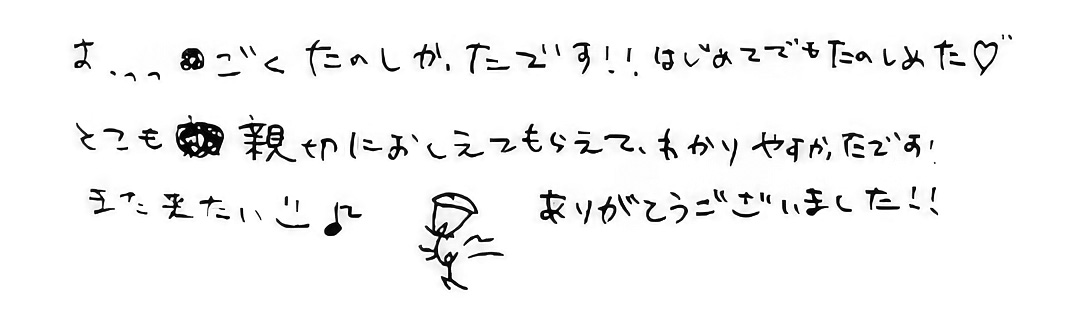 す、、、ごくたのしかったです!!はじめてでもたのしめた♡
とても親切におしえてもらえて、わかりやすかったです!
また来たい ありがとうございました!!